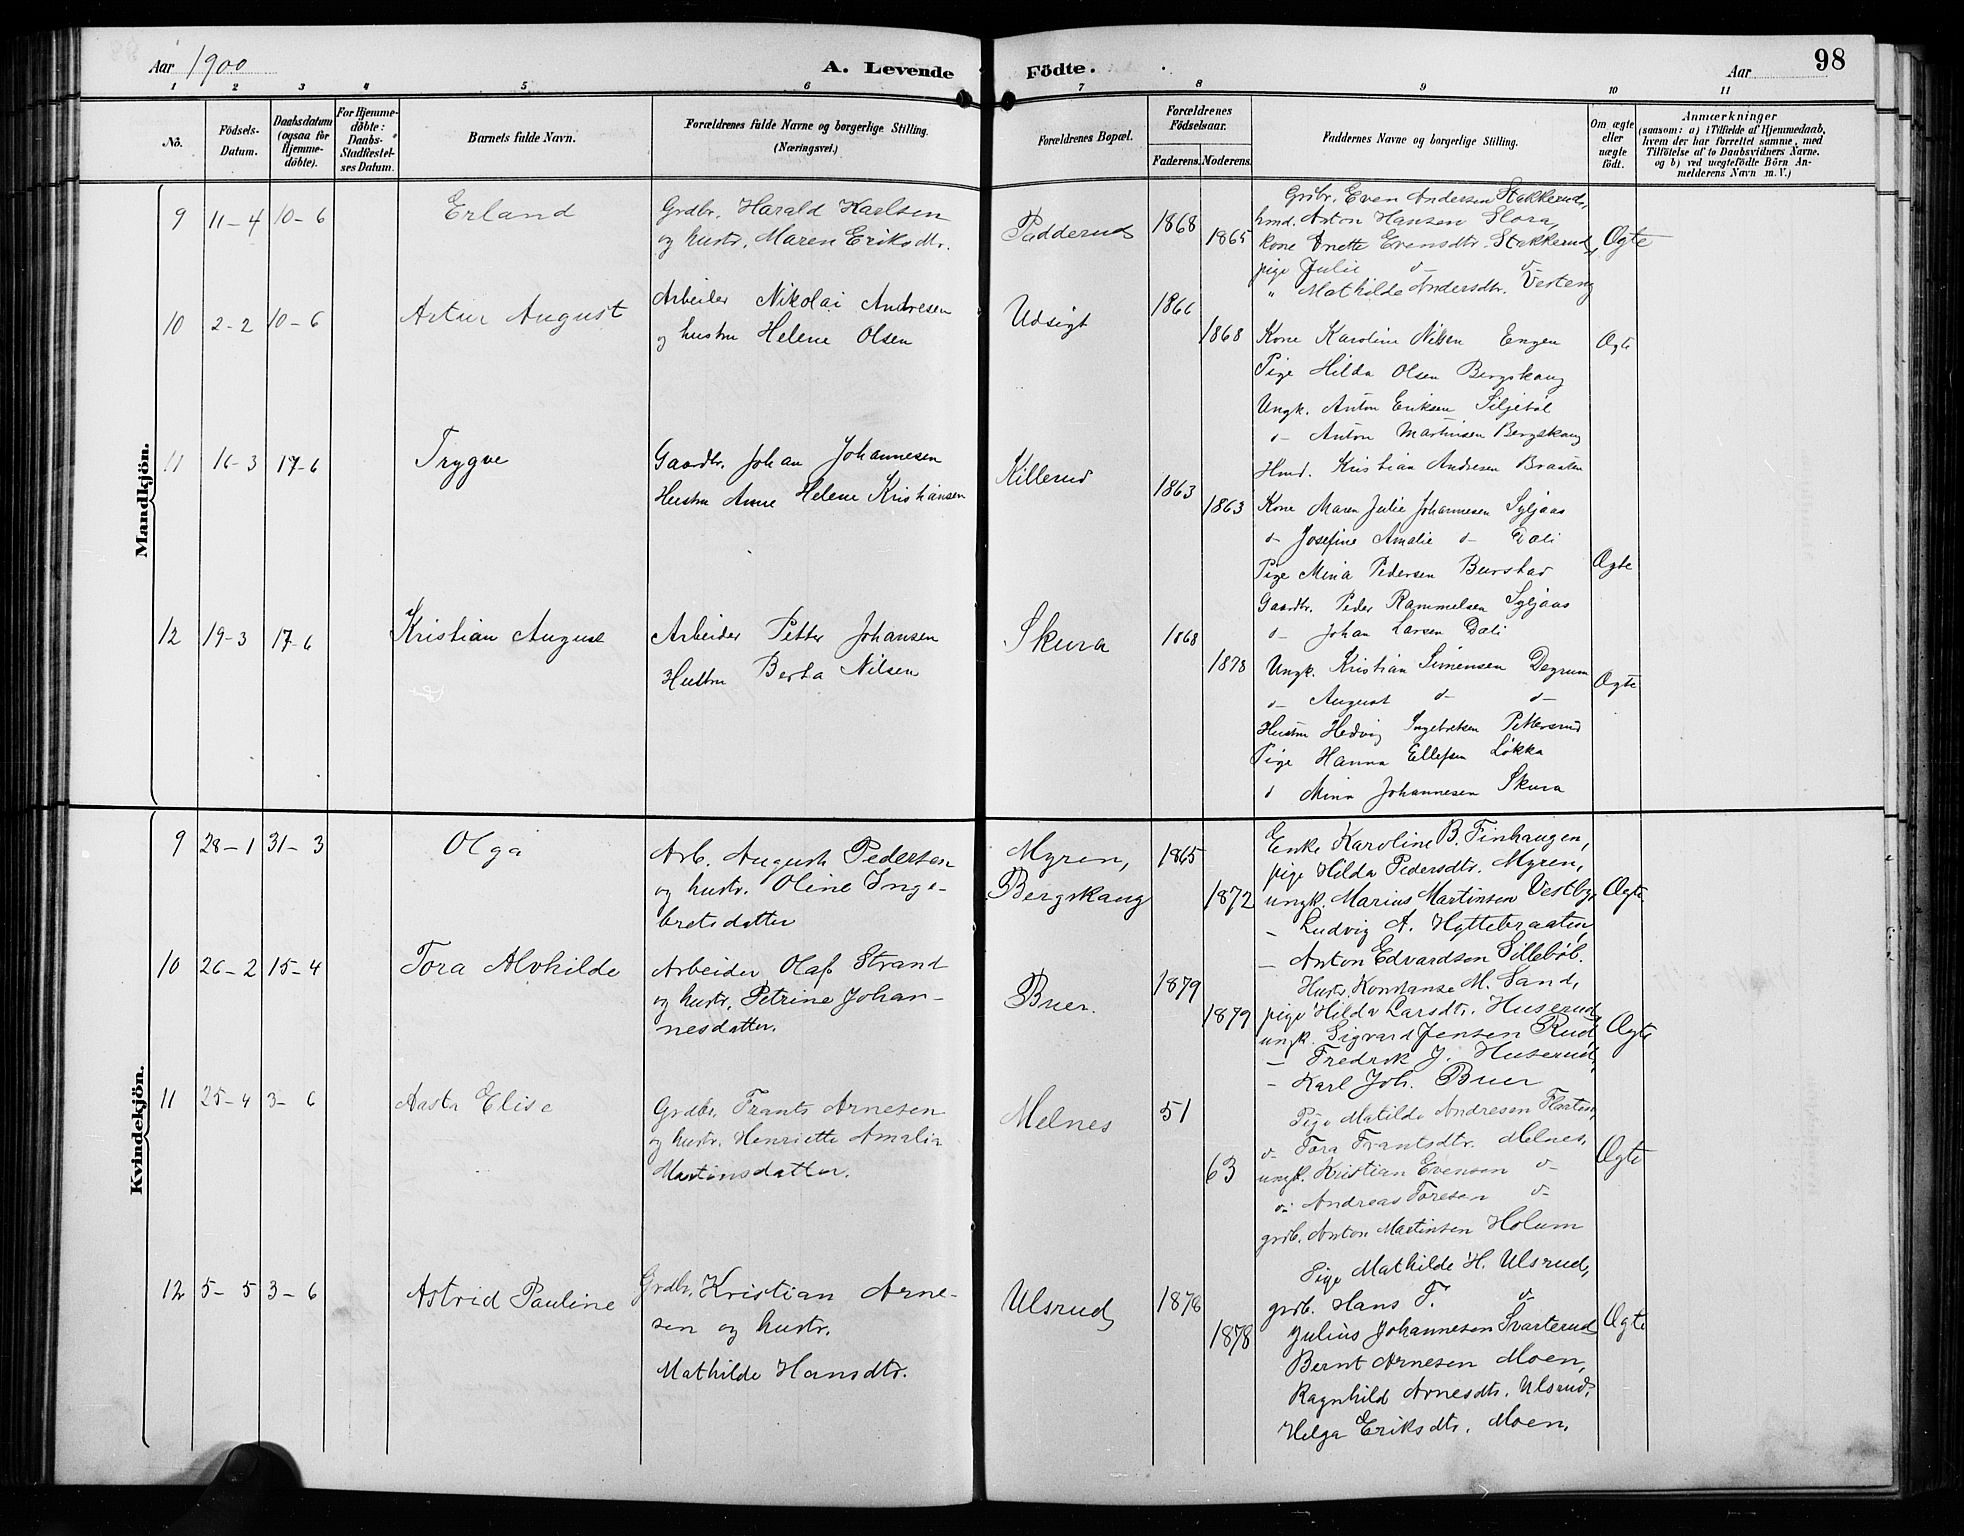 Aar 1900
A. Levende Födte.
Aar
98
1 2 3 4 5 6 7 8 9 10 11
No.
Födsels-Datum.
Daabsdatum (ogsaa for Hjemmedöbte).
For Hjemmedöbte: Daabs-Stadfæstelses Datum.
Barnets fulde Navn.
Forældrenes fulde Navne og borgerlige Stilling. (Næringsvei.)
Forældrenes Bopæl.
Forældrenes Födselsaar.
Faderens. Moderens.
Faddernes Navne og borgerlige Stilling.
Om ægte eller uægte födt.
Anmærkninger
(saasom: a) i Tilfælde af Hjemmedaab, hvem der har forrettet samme, med Tilföielse af to Daabsvidners Navne. og b) ved uægtefödte Börn Anmelderens Navn m. V.)
Mandkjön.
9 11-4 10-6 Erland
Grdbr. Harald Karlsen
og hustr. Maren Eriksdtr.
Padderud 1868 1865
Grdbr. Even Andersen Stakkerud,
hmd. Anton Hansen Slora,
Kone Anette Evensdtr. Stakkerud,
pige Julie d- d-
" Mathilde Andersdtr. Vesteng
Ægte
10 2-2 10-6 Artur August
Arbeider Nikolai Andresen
og hustru Helene Olsen
Udsigt 1866 1868
Kone Karoline Nilsen Engen
Pige Hilda Olsen Bergskaug
Ungk. Anton Eriksen Siljeböl
d- Anton Martinsen Bergskaug
Hmd. Kristian Andresen Braaten
Ægte
11 16-3 17-6 Trygve
Gaardbr. Johan Johannesen
Hustru Anne Helene Kristiansen
Killerud 1863 1863
Kone Maren Julie Johannesen Syljaas
d- Josefine Amalie d- Dæli
Pige Mina Pedersen Burstad
Gaardbr. Peder Rammelsen Syljaas
d- Johan Larsen Dæli
Ægte
12 19-3 17-6 Kristian August
Arbeider Petter Johansen
Hustru Berta Nilsen
Skura 1868 1878
Ungk. Kristian Simensen Degrum
d- August d- d-
Hustru Hedvig Ingebretsen Pettersrud
Pige Hanna Ellefsen Løkka
d Mina Johannesen Skura
Ægte
Kvindekjön.
9 28-1 31-3 Olga
Arb. August Pedersen
og hustr. Oline Inge-
bretsdatter
Myren,
Bergskaug 1865 1872
Enke Karoline B. Finhaugen,
pige Hilda Pedersdtr. Myren,
ungk. Marius Martinsen Vestby,
- Ludvig A. Hyttebraaten,
- Anton Edvardsen Silleböl.
Ægte
10 26-2 15-4 Tora Alvhilde
Arbeider Olaf Strand
og hustr. Petrine Johan-
nesdatter.
Buer. 1879 1879
Hustr. Konstanse M. Sand,
pige Hilda Larsdtr. Huserud,
ungk. Sigvard Jensen Rud,
- Fredrik J. Huserud,
- Karl Joh. Buer
Ægte
11 25-4 3-6 Aasta Elise
Grdbr. Frants Arnesen
og hustr. Henriette Amalia
Martinsdatter.
Melnes 51 63
Pige Matilde Andresen
d- Tora Frantsdtr. Melnes,
ungk. Kristian Evensen d-
d- Andreas Toresen d-
grdb. Anton Martinsen Holum
Ægte
12 5-5 3-6 Astrid Pauline
Grdbr. Kristian Arne-
sen og hustr.
Mathilde Hansdtr.
Ulsrud 1878 1878
Pige Mathilde H. Ulsrud,
grdb. Hans T. d-
Julius Johannesen Svarterud
Bernt Arnesen Moen,
Ragnhild Arnesdtr. Ulsrud,
Helga Eriksdtr. Moen.
Ægte